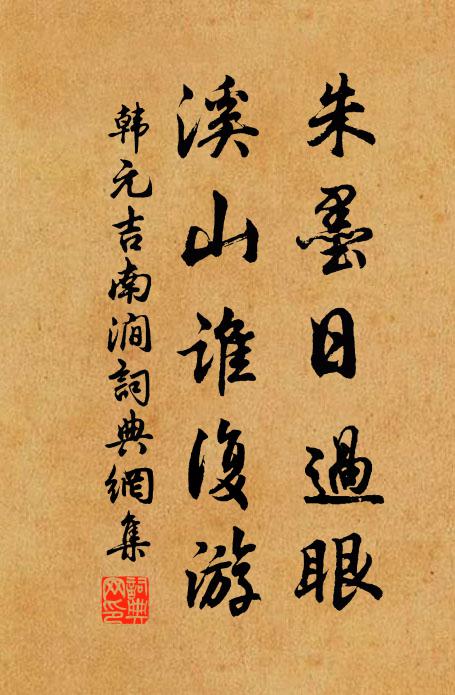 朱墨日過眼
溪山誰復游
韩元吉南澗詞典網集
詞典網印